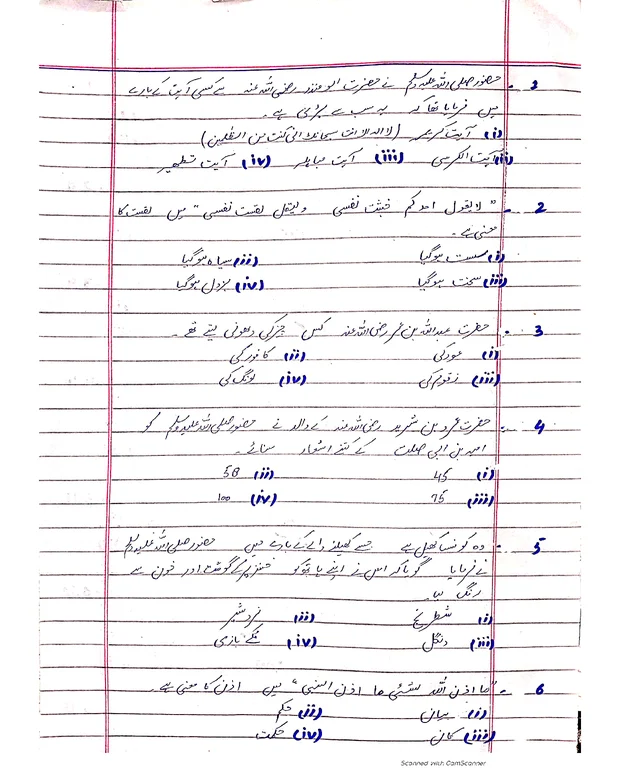 1 - حضور صلی اللہ علیہ وسلم نے حضرت ابو منذر رضی اللہ عنہ سے کسی آیت کے بارے
میں فرمایا تھا کہ یہ سب سے بڑی ہے۔
(i) آیت کریمہ (لا الہ الا انت سبحانک انی کنت من الظلمین)
(ii) آیت الکرسی (iii) آیت مباہلہ (iv) آیت تطہیر
2 - "لا یقول احدکم خبثت نفسی ولیقل لقست نفسی" میں لقست کا
معنی ہے۔
(i) سست ہوگیا (ii) سیاہ ہوگیا
(iii) سخت ہوگیا (iv) بزدل ہوگیا
3 - حضرت عبداللہ بن عمر رضی اللہ عنہ کس چیز کی دھونی لیتے تھے۔
(i) عود کی (ii) کافور کی
(iii) زقوم کی (iv) لونگ کی
4 - حضرت عمرو بن شرید رضی اللہ عنہ کے والد نے حضور صلی اللہ علیہ وسلم کو
امیہ بن ابی صلت کے کتنے اشعار سنائے۔
(i) 45 (ii) 50
(iii) 75 (iv) 100
5 - وہ کونسا کھیل ہے جسے کھیلنے والے کے بارے میں حضور صلی اللہ علیہ وسلم
نے فرمایا گویا کہ اس نے اپنے ہاتھ کو خنزیر کے گوشت اور خون سے
رنگ لیا۔
(i) شطرنج (ii) نردشیر
(iii) دنگل (iv) مکے بازی
6 - "ما اذن اللہ لشئی ما اذن للنبی" میں اذن کا معنی ہے۔
(i) بیان (ii) حکم
(iii) کان (iv) حکمت
Scanned with CamScanner